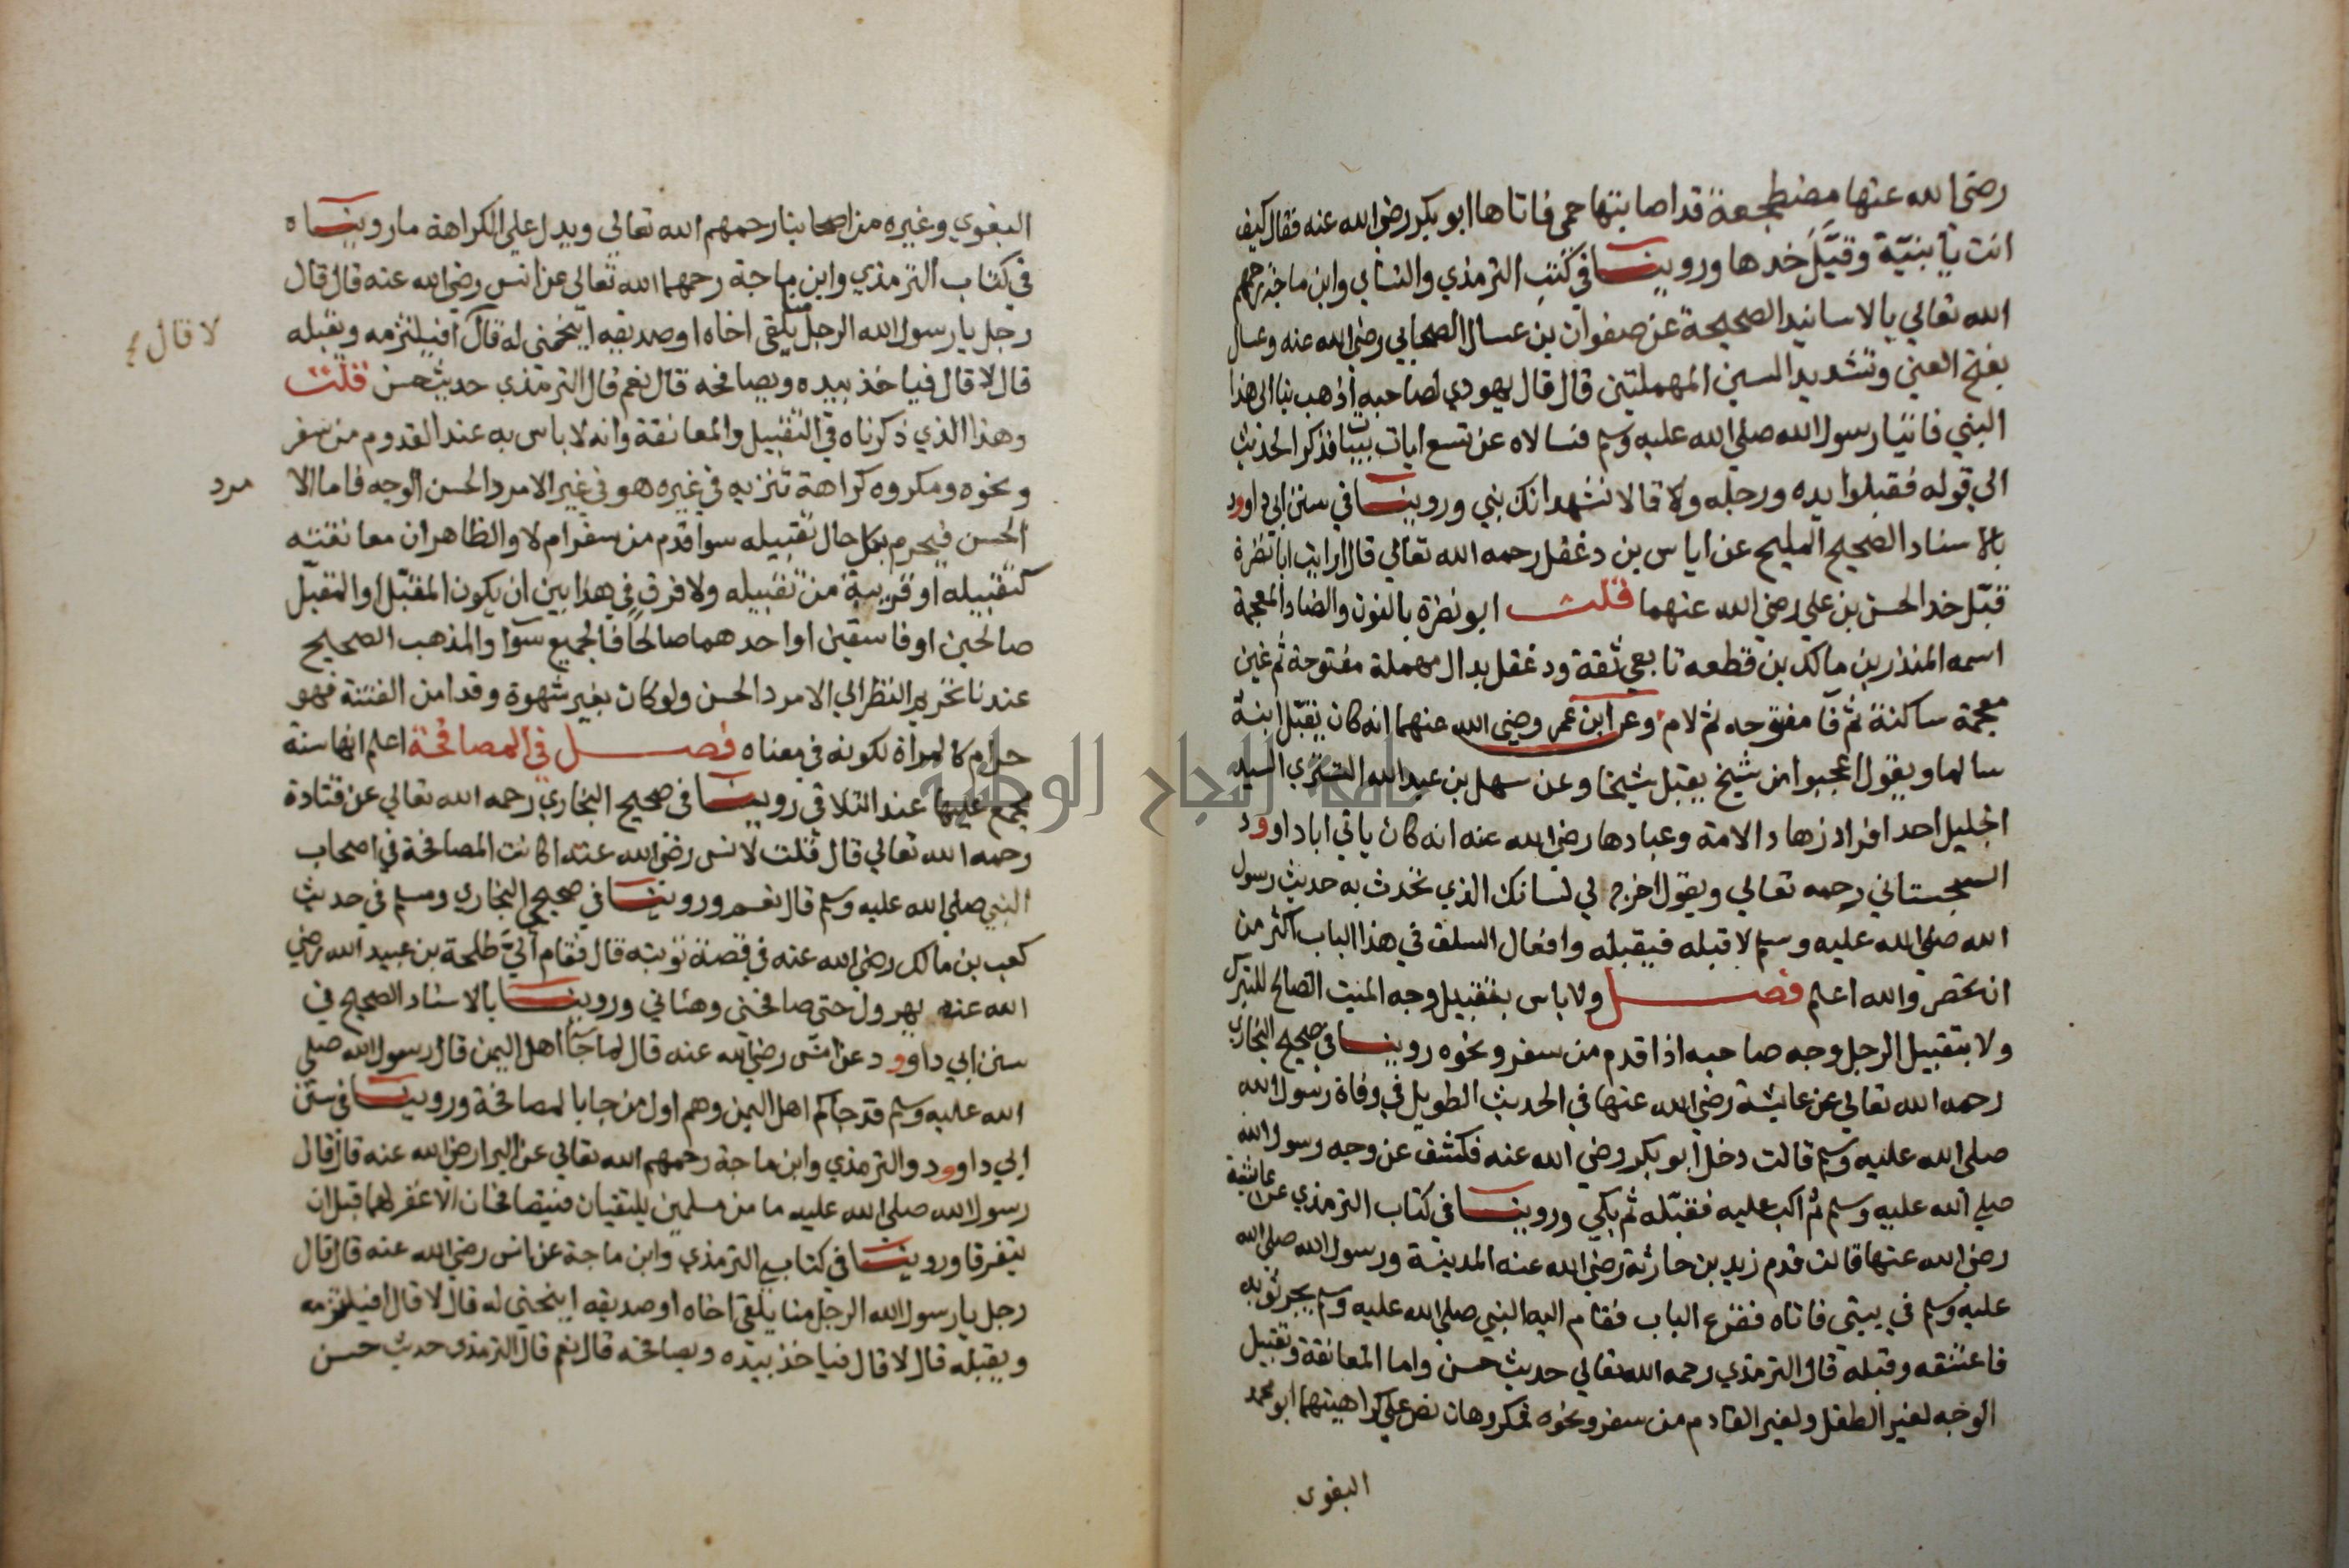 رضى الله عنها مضطجعة قد اصابتها حمى فاتاها ابو بكر رضى الله عنه فقال كيف
انت يا بنيّة وقبّل خدها وروينا في كتب الترمذي والنسائي وابن ماجة رحمهم
الله تعالي بالاسانيد الصحيحة عن صفوان بن عسال الصحابي رضى الله عنه وعسال
بفتح العين وتشديد السين المهملتين قال قال يهودي لصاحبه اذهب بنا الى هذا
النبي فاتيا رسول الله صلى الله عليه وسلم فسالاه عن تسع ايات بينات فذكر الحديث
الي قوله فقبلوا يده ورجله وقالا نشهد انك نبي وروينا في سنن ابي داوود
بالاسناد الصحيح المليح عن اياس بن دغفل رحمه الله تعالي قال رايت ابا نضرة
قبّل خد الحسن بن علي رضي الله عنهما قلت ابو نضرة بالنون والضاد المعجمة
اسمه المنذر بن مالك بن قطعه تابعي ثقة ودغفل بدال مهملة مفتوحة ثم غين
معجمة ساكنة ثم فآ مفتوحه ثم لام وعن ابن عمر رضي الله عنهما انه كان يقبّل ابنة
سالما ويقول اعجبوا من شيخ يقبل شيخا وعن سهل بن عبد الله التستري السيد
الجليل احد افراد زهاد الامة وعبادها رضى الله عنه انه كان ياتي ابا داوود
السجستاني رحمه تعالي ويقول اخرج لي لسانك الذي تحدث به حديث رسول
الله صلى الله عليه وسلم لاقبله فيقبله وافعال السلف في هذا الباب اكثر من
ان تحصر والله اعلم فصل ولا باس بتقبيل وجه الميت الصالح للتبرك
ولا بتقبيل الرجل وجه صاحبه اذا قدم من سفر ونحوه روينا في صحيح البخاري
رحمه الله تعالي عن عايشة رضي الله عنها في الحديث الطويل في وفاة رسول الله
صلى الله عليه وسلم قالت دخل ابو بكر رضي الله عنه فكشف عن وجه رسول الله
صلي الله عليه وسلم ثم اكب عليه فقبّله ثم بكي وروينا في كتاب الترمذي عن عائشة
رضى الله عنها قالت قدم زيد بن حارثة رضي الله عنه المدينة ورسول الله صلى الله
عليه وسلم في بيتي فاتاه فقرع الباب فقام اليه النبي صلى الله عليه وسلم يجر ثوبه
فاعتنقه وقبله قال الترمذي رحمه الله تعالي حديث حسن واما المعانقة وتقبيل
الوجه لغير الطفل ولغير القادم من سفر ونحوه فمكروهان نص على كراهيتهما ابو محمد
البغوى
البغوي وغيره من اصحابنا رحمهم الله تعالي ويدل على الكراهة ما رويناه
في كتاب الترمذي وابن ماجة رحمهما الله تعالى عن انس رضي الله عنه قال قال
رجل يا رسول الله الرجل منا يلقى اخاه او صديقه اينحنى له قال افيلتزمه ويقبله
لا قال
قال لا قال فياخذ بيده ويصافحه قال نعم قال الترمذي حديث حسن قلت
وهذا الذي ذكرناه في التقبيل والمعانقة وانه لا باس به عند القدوم من سفر
ونحوه ومكروه كراهة تنزيه في غيره هو في غير الامرد الحسن الوجه فاما الا
مرد
الحسن فيحرم بكل حال تقبيله سوا قدم من سفر ام لا والظاهر ان معانقته
كتقبيله او قريبة من تقبيله ولا فرق في هذا بين ان يكون المقبّل والمقبّل
صالحين او فاسقين او احدهما صالحا فالجميع سوآ والمذهب الصحيح
عندنا تحريم النظر الي الامرد الحسن ولو كان بغير شهوة وقد امن الفتنة فهو
حرام كالمراة لكونه في معناه فصل في المصافحة اعلم انها سنة
مجمع عليها عند التلاقي روينا في صحيح البخاري رحمه الله تعالي عن قتادة
رحمه الله تعالي قال قلت لانس رضي الله عنه اكانت المصافحة في اصحاب
النبي صلى الله عليه وسلم قال نعم وروينا في صحيحي البخاري ومسلم في حديث
كعب بن مالك رضي الله عنه في قصة توبته قال فقام الىّ طلحة بن عبيد الله رضي
الله عنه يهرول حتى صافحنى وهناني وروينا بالاسناد الصحيح في
سنن ابي داوود عن انس رضي الله عنه قال لما جآ اهل اليمن قال رسول الله صلى
الله عليه وسلم قد جاكم اهل اليمن وهم اول من جا بالمصافحة وروينا في سنن
ابي داوود والترمذي وابن ماجة رحمهم الله تعالي عن البرا رضي الله عنه قال قال
رسول الله صلى الله عليه ما من مسلمين يلتقيان فيتصافحان الا غفر لهما قبل ان
يتفرقا وروينا في كتابي الترمذي وابن ماجة عن انس رضي الله عنه قال قال
رجل يا رسول الله الرجل منا يلقى اخاه او صديقه اينحنى له قال لا قال افيلتزمه
ويقبله قال لا قال فياخذ بيده ويصافحه قال نعم قال الترمذى حديث حسن
جامعة النجاح الوطنية